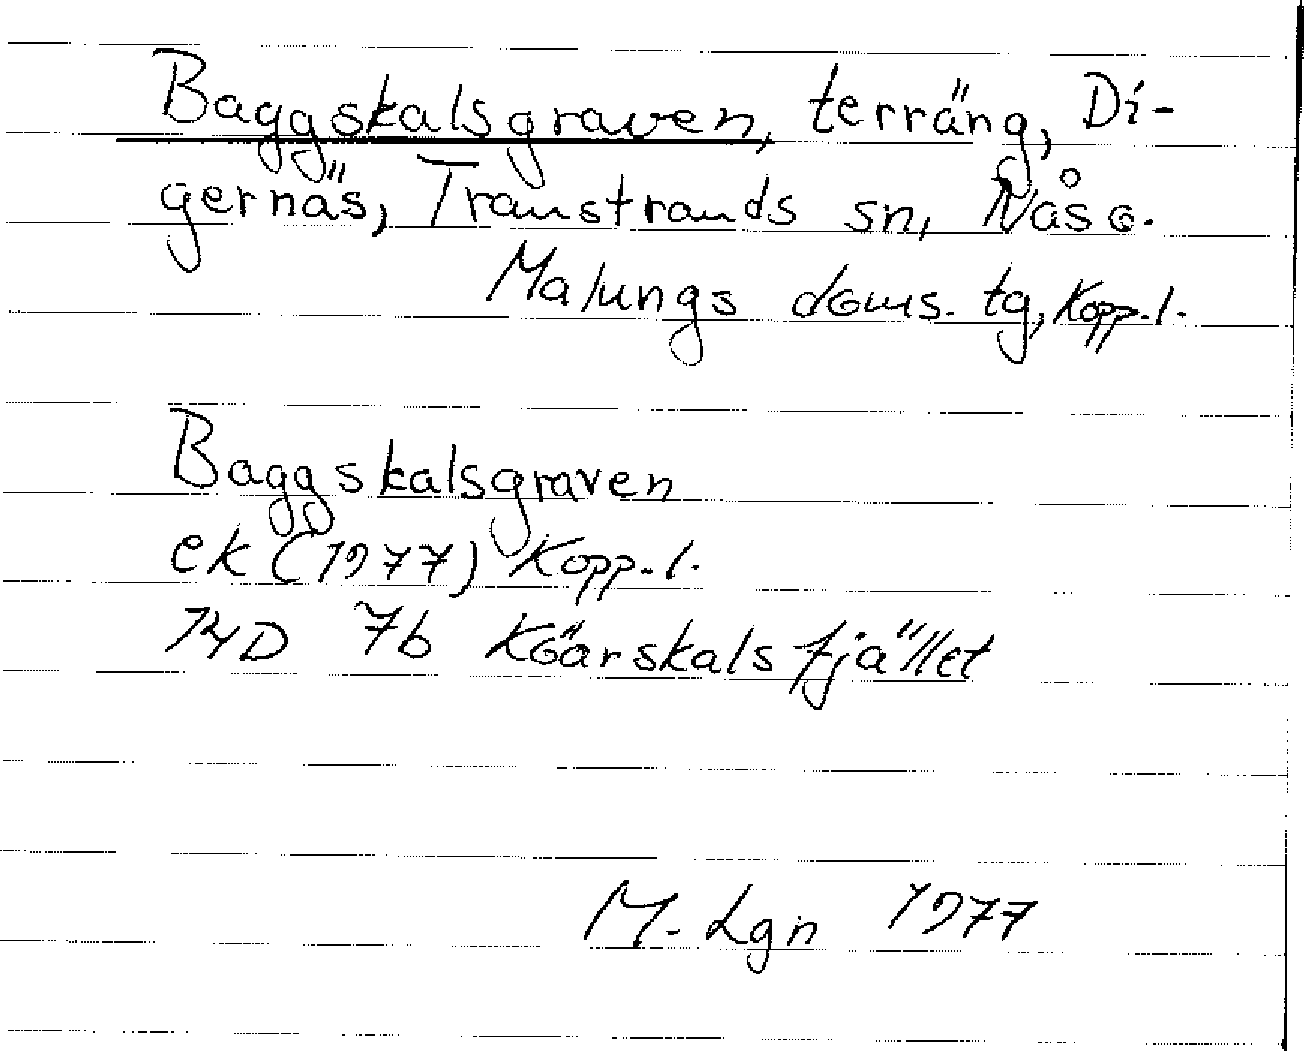 Baggskalsgraven, terräng, Di-
gernäs, Transtrands sn, Nås o.
Malungs doms. tg, Kopp. l.
Baggskalsgraven
ek (1977) Kopp. l.
14D 7b Köarskalsfjället
M. Lgn 1977